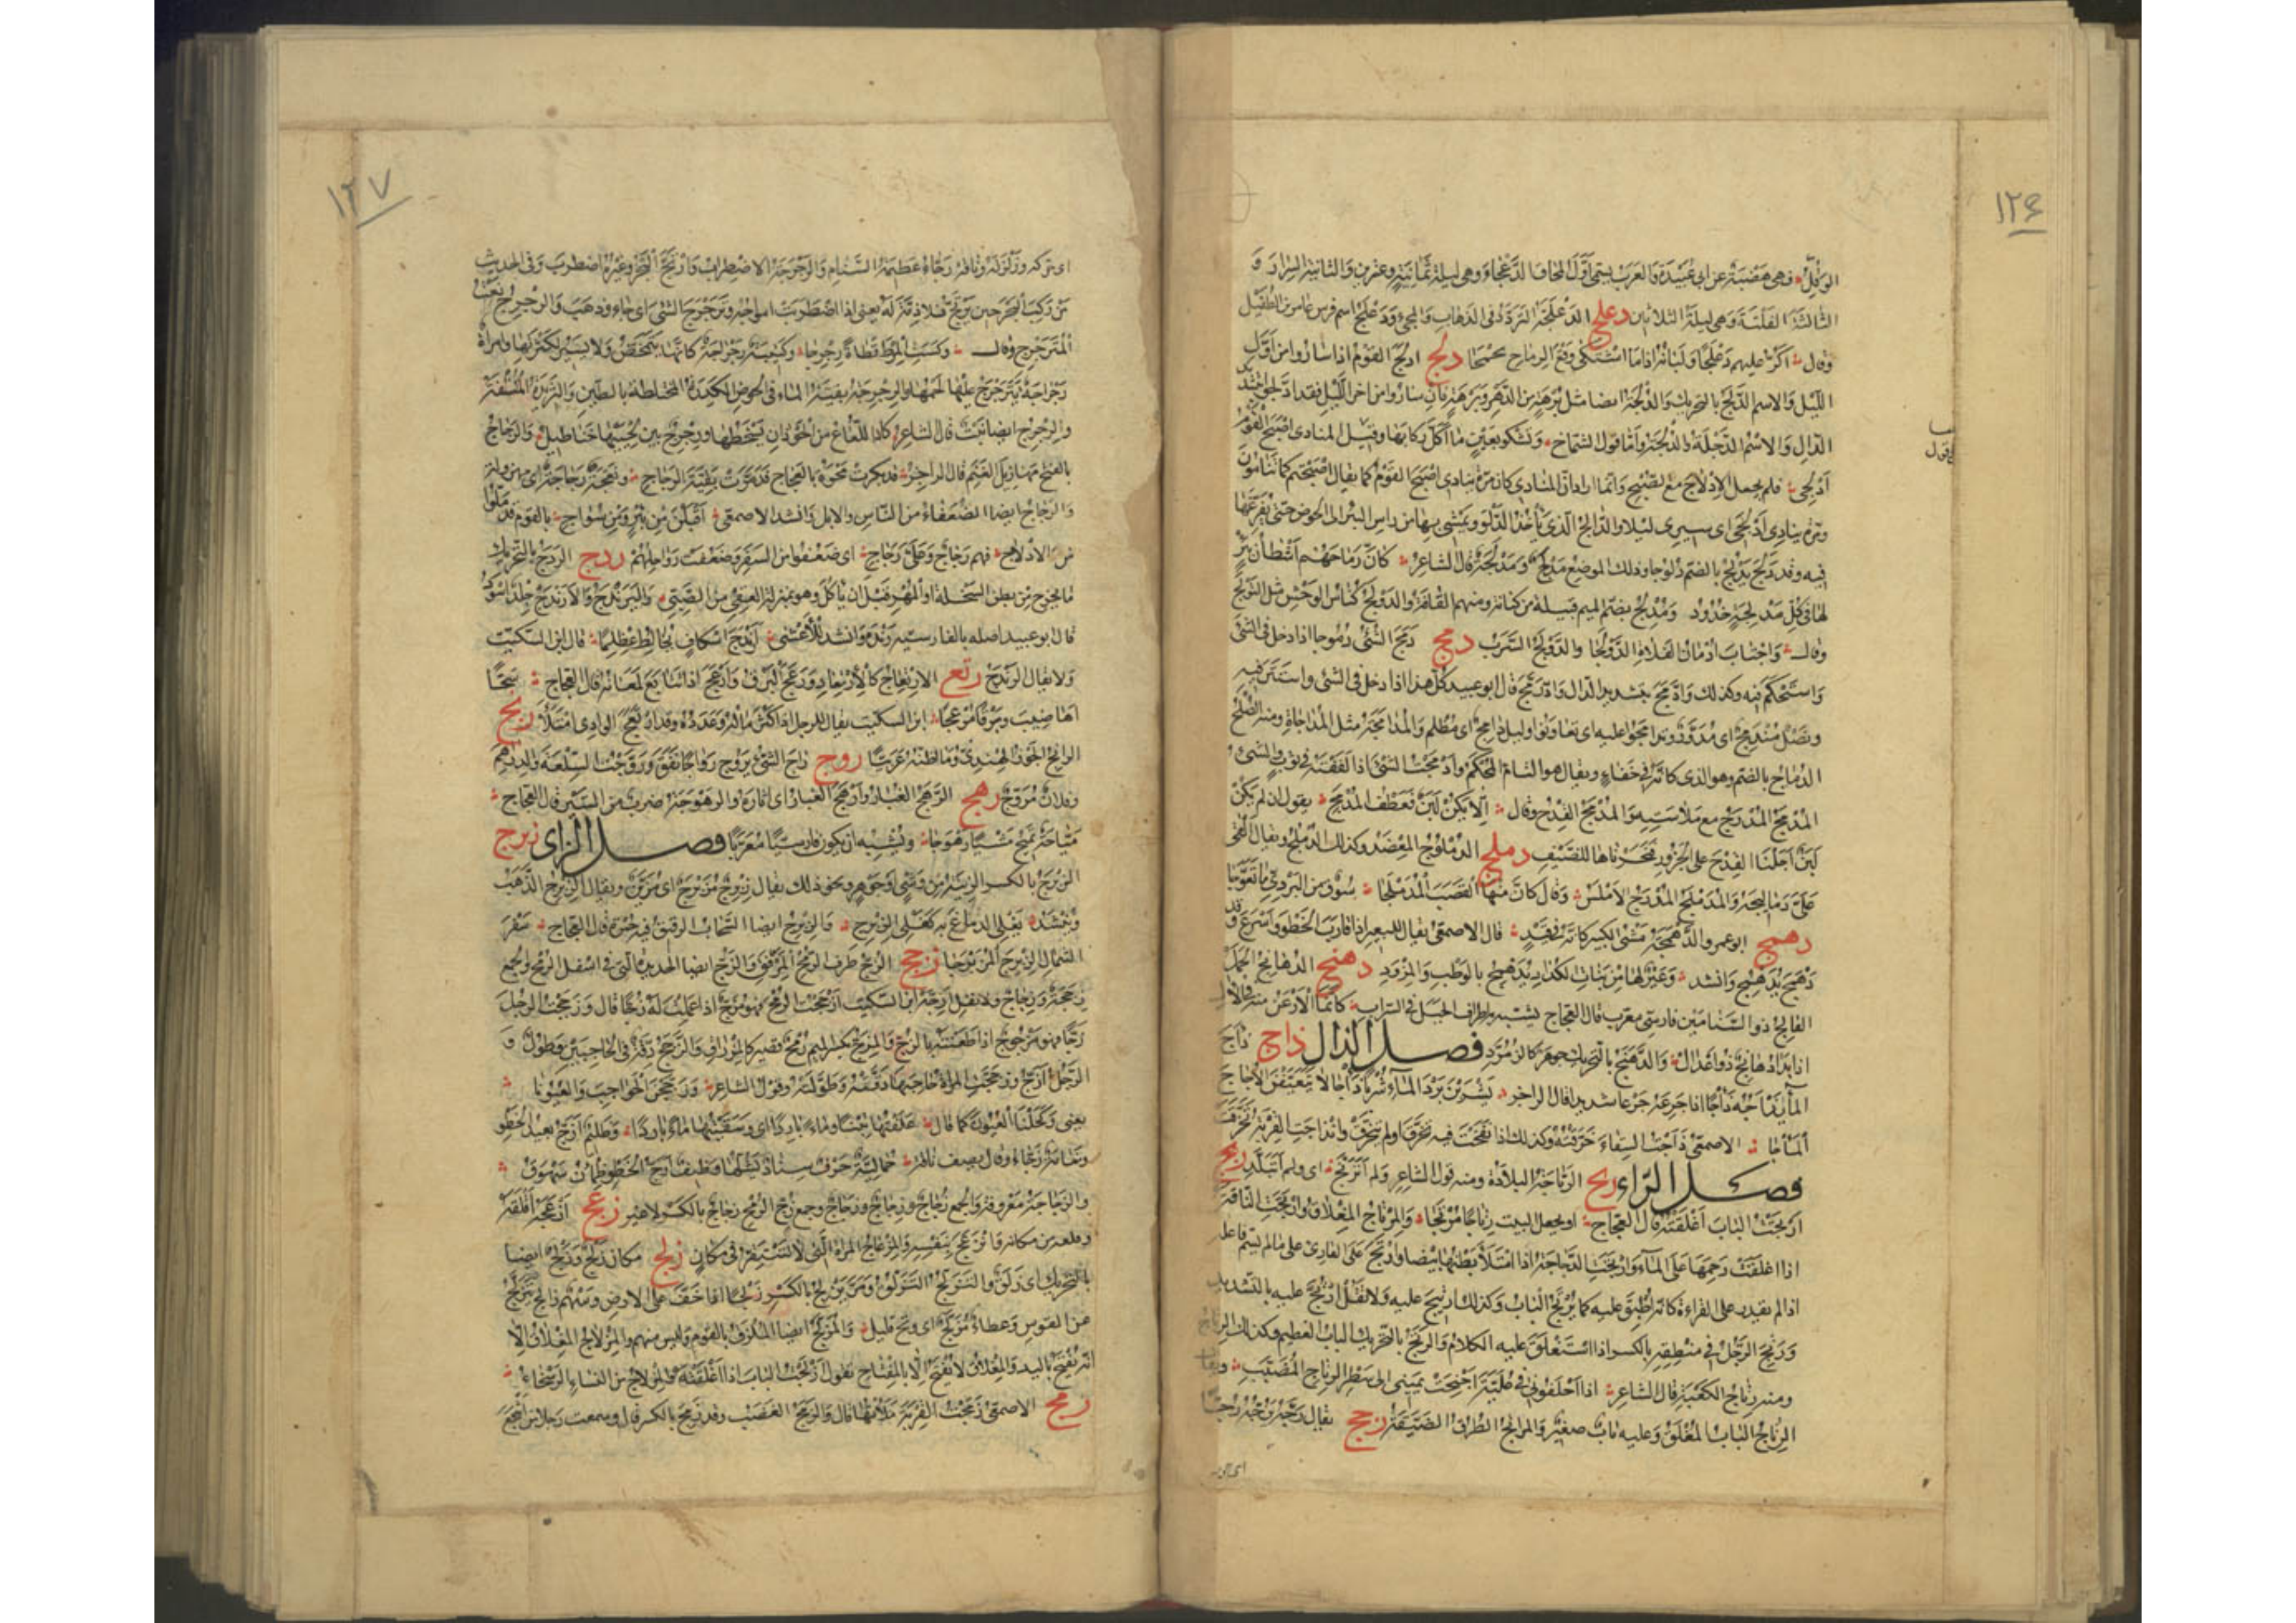 ١٢۶
الوركل فهى هضبة عن ابى عبيدة والعرب يسمى اول المحاق الدعجاء وهى ليلة ثمانية وعشرين والثانية السرار و
الثالثة الفلتة وهى ليلة الثلاثين دعلج الدعلجة التردد فى الذهاب والمجىء ودعلج اسم فرس عامر بن الطفيل
وقال اكر عليهم دعلجا ولبانه اذا ما اشتكى وقع الرماح تحمحما دلج ادلج القوم اذا ساروا من اول
الليل والاسم الدلج بالتحريك والدلجة ايضا مثل برهة من الدهر وبرهة فان ساروا من اخر الليل فقد ادلجوا بتشديد
الدال والاسم الدلجة والدلجة واما قول الشماخ وتشكو بعين ما اكل ركابها وقيل المنادى اصبح القوم
ادلجى فلم يجعل الادلاج مع الصبح وانما اراد ان المنادى كان مرة ينادى اصبح القوم كما يقال اصبحتم كم تنامون
ومرة ينادى ادلجى اى سيرى ليلا والدالج الذى ياخذ الدلو ويمشى بها من راس البئر الى الحوض حتى يفرغها
فيه وقد دلج يدلج بالضم دلوجا وذلك الموضع مدلج ومدلجة قال الشاعر كان رماحهم اشطان بئر
لها فى كل مدلجة خدود ومدلج بضم الميم قبيلة من كنانة ومنهم القافة والدولج كناس الوحش مثل التولج
وقال واجتاب ادمان الفلاة الدولجا والدولج السرب دمج دمج الشىء دموجا اذا دخل فى الشىء
واستحكم فيه وكذلك اندمج وادمج بتشديد الدال وادرمج قال ابو عبيد كل هذا اذا دخل فى الشىء واستتر فيه
ونصل مندمج اى مدور وتدامجوا عليه اى تعاونوا وليل دامج اى مظلم والمدامجة مثل المداجاة ومنه الصلح
الدماج بالضم وهو الذى كانه فى خفاء ويقال هو التام المحكم وادمجت الشىء اذا لففته فى ثوب والشىء
المدمج المدرج مع ملاسته والمدمج القدح وقال الا يكن لبن فعطف المدمج يقول ان لم يكن
لبن اجلنا القدح على الجزور فنحرناها للضيف دملج الدملوج المعضد وكذلك الدملج ويقال القى
على دماليجه والمدملج المدرج الاملس وقال كان منها القصب المدملجا سوق من البردى ما تعوجا
دهمج ابو عمرو الدهمجة مشى الكبير كانه فى قيد قال الاصمعى يقال للبعير اذا قارب الخطو واسرع قد
دهمج يدهمج وانشد وعير لها من بنات الكداد يدهمج بالوطب والمزود دهنج الدهانج الجمل
الفالج ذو السنامين فارسى معرب قال العجاج يشبه به اطراف الجبل فى السراب كانما الارعن منه فى الال
اذا بدا دهانج ذو اعدال والدهنج بالتحريك جوهر كالزمرد فصل الذال ذاج ذاج
الماء يذاجه ذاجا اذا جرعه جرعا شديدا قال الراجز يشربن برد الماء شربا ذاجا لا يتعيفن الاجاج
الماجا الاصمعى ذاجت السقاء خرقته وكذلك اذا نفخت فيه تخرق او لم يتخرق وانذاجت القربة تخرقت
فصل الراى ربج الرباجة البلادة ومنه قول الشاعر ولم اتربج اى ولم اتبلد رتج
ارتجت الباب اغلقته قال العجاج او يجعل البيت رتاجا مرتجا والمرتاج المغلاق وارتجت الناقة
اذا اغلقت رحمها على الماء وارتجت الدجاجة اذا امتلا بطنها بيضا وارتج على القارئ على ما لم يسم فاعله
اذا لم يقدر على القراءة كانه اطبق عليه كما يرتج الباب وكذلك ارتتج عليه ولا تقل ارتج عليه بالتشديد
ورتج الرجل فى منطقه بالكسر اذا استغلق عليه الكلام والرتج بالتحريك الباب العظيم وكذلك الرتاج
ومنه رتاج الكعبة قال الشاعر اذا احلفونى فى علية اجنحت يمينى الى شطر الرتاج المضبب ويقال
الرتاج الباب المغلق وعليه باب صغير والمراتج الطرق الضيقة رجج يقال رجه يرجه رجا
١٢٧
اى حركه وزلزله وناقة رجاء عظيمة السنام والرجرجة الاضطراب وارتج البحر وغيره اضطرب وفى الحديث
من ركب البحر حين يرتج فلا ذمة له يعنى اذا اضطربت امواجه وترجرج الشىء اى جاء وذهب والرجرج نعت
المترجرج وقال وكست المرط قطاة رجرجا وكتيبة رجراجة كانها تمخض ولا تسير لكثرتها وامراة
رجراجة يترجرج عليها لحمها والرجرجة بقية الماء فى الحوض الكدرة المختلطة بالطين والثريدة الملبقة
والرجرج ايضا نبت قال الشاعر كاد اللعاع من الحوذان يسحطها ورجرج بين لحييها خناطيل والرجاج
بالفتح مهازيل الغنم قال الراجز قد بكرت محوة بالعجاج فدمرت بقية الرجاج ونعجة رجاجة اى مهزولة
والرجاج ايضا الضعفاء من الناس والابل وانشد الاصمعى اقبلن من نير ومن سواج بالقوم قد ملوا
من الادلاج فهم رجاج وعلى رجاج اى ضعفوا من السفر وضعفت رواحلهم ردج الردج بالتحريك
ما يخرج من بطن السخلة او المهر قبل ان ياكل وهو بمنزلة العقى من الصبى واليرندج والارندج جلد اسود
قال ابو عبيد اصله بالفارسية رنده وانشد للاعشى ارندج اسكاف يخالط عظلما قال ابن السكيت
ولا يقال الرندج رتعج الارتعاج كالارتعاد ورعج البرق وارعج اذا تتابع لمعانه قال العجاج سحا
اهاضيب وبرقا مرعجا ابن السكيت يقال للرجل اذا كثر ماله وعدده قد ارتعج وارتعج الوادى امتلا رنج
الرانج الجوز الهندى وما اظنه عربيا روج راج الشىء يروج رواجا نفق وروجت السلعة والدراهم
وفلان مروج رهج الرهج الغبار وارهج الغبار اى اثاره والرهوجة ضرب من السير قال العجاج
مياحة تميح مشيا رهوجا ويشبه ان يكون فارسيا معربا فصل الزاى زبرج
الزبرج بالكسر الزينة من وشى او جوهر ونحو ذلك يقال زبرج مزبرج اى مزين ويقال الزبرج الذهب
وينشد يغلى الدماغ به كغلى الزبرج والزبرج ايضا السحاب الرقيق فيه حمرة قال العجاج سفر
الشمال الزبرج المزبرجا زجج الزج طرف المرفق والزج ايضا الحديدة التى فى اسفل الرمح والجمع
زججة وزجاج ولا تقل ازجة ابن السكيت ازججت الرمح فهو مزج اذا عملت له زجا قال وزججت الرجل
زجا فهو مزجوج اذا طعنته بالزج والمزج بكسر الميم رمح قصير كالمزراق والزجج دقة فى الحاجبين وطول و
الرجل ازج وزججت المراة حاجبها دققته وطولته وقول الشاعر وزججن الحواجب والعيونا
يعنى وكحلن العيون كما قال علفتها تبنا وماء باردا اى وسقيتها ماء باردا وظليم ازج بعيد الخطو
ونعامة زجاء وقال يصف ناقة جمالية حرف سناد يشلها وظيف ازج الخطو ظمان سهوق
والزجاجة معروفة والجمع زجاج وزجاج وزجاج وجمع زج الرمح زجاج بالكسر لا غير زعج ازعجه اقلقه
وقلعه من مكانه فانزعج بنفسه والمزعاج المراة التى لا تستقر فى مكان زلج مكان زلج وزلج ايضا
بالتحريك اى زلق والتزلج التزلق ومر يزلج بالكسر زلجا اذا خف على الارض وسهم زالج يتزلج
عن القوس وعطاء مزلج اى وتح قليل والمزلج ايضا الملزق بالقوم وليس منهم والمزلاج المغلاق الا
انه يفتح باليد والمغلاق لا يفتح الا بالمفتاح تقول ازلجت الباب اذا اغلقته والمزلاج من النساء الرسحاء
زمج الاصمعى زمجت القربة ملاتها قال والزمج الغضب وقد زمج بالكسر قال وسمعت رجلا من اشجع